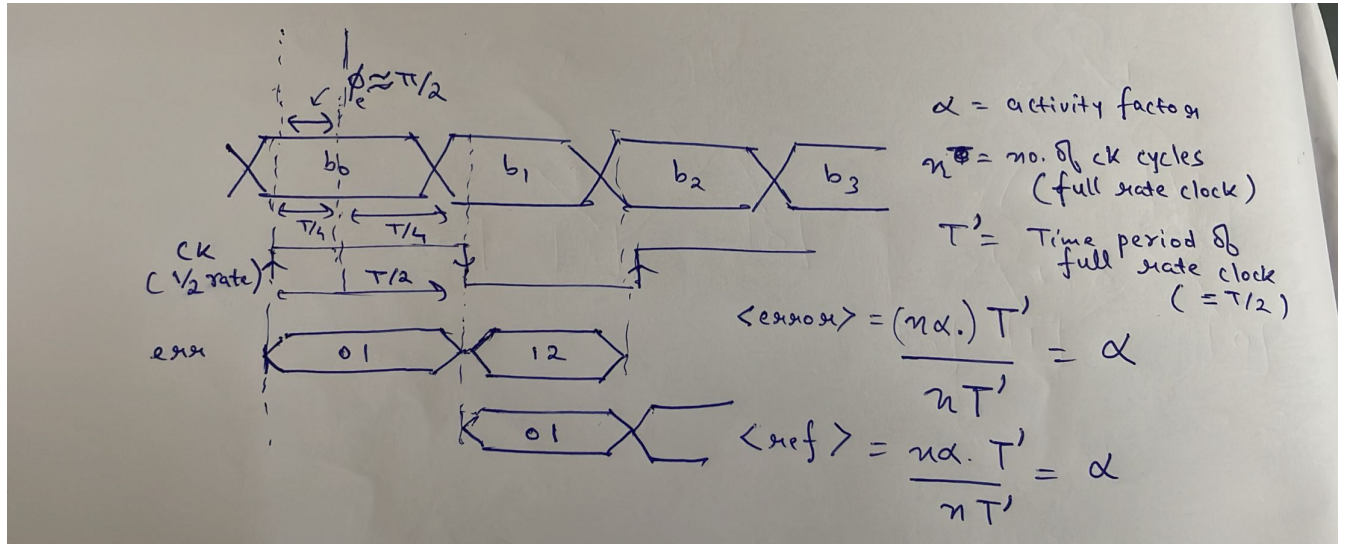 ϕe ≈ π/2
b0
b1
b2
b3
T/4
T/4
CK
(1/2 rate)
T/2
err
01
12
01
α = activity factor
n = no. of ck cycles
(full rate clock)
T' = Time period of
full rate clock
(= T/2)
<error> = (nα.) T' / nT' = α
<ref> = nα. T' / nT' = α